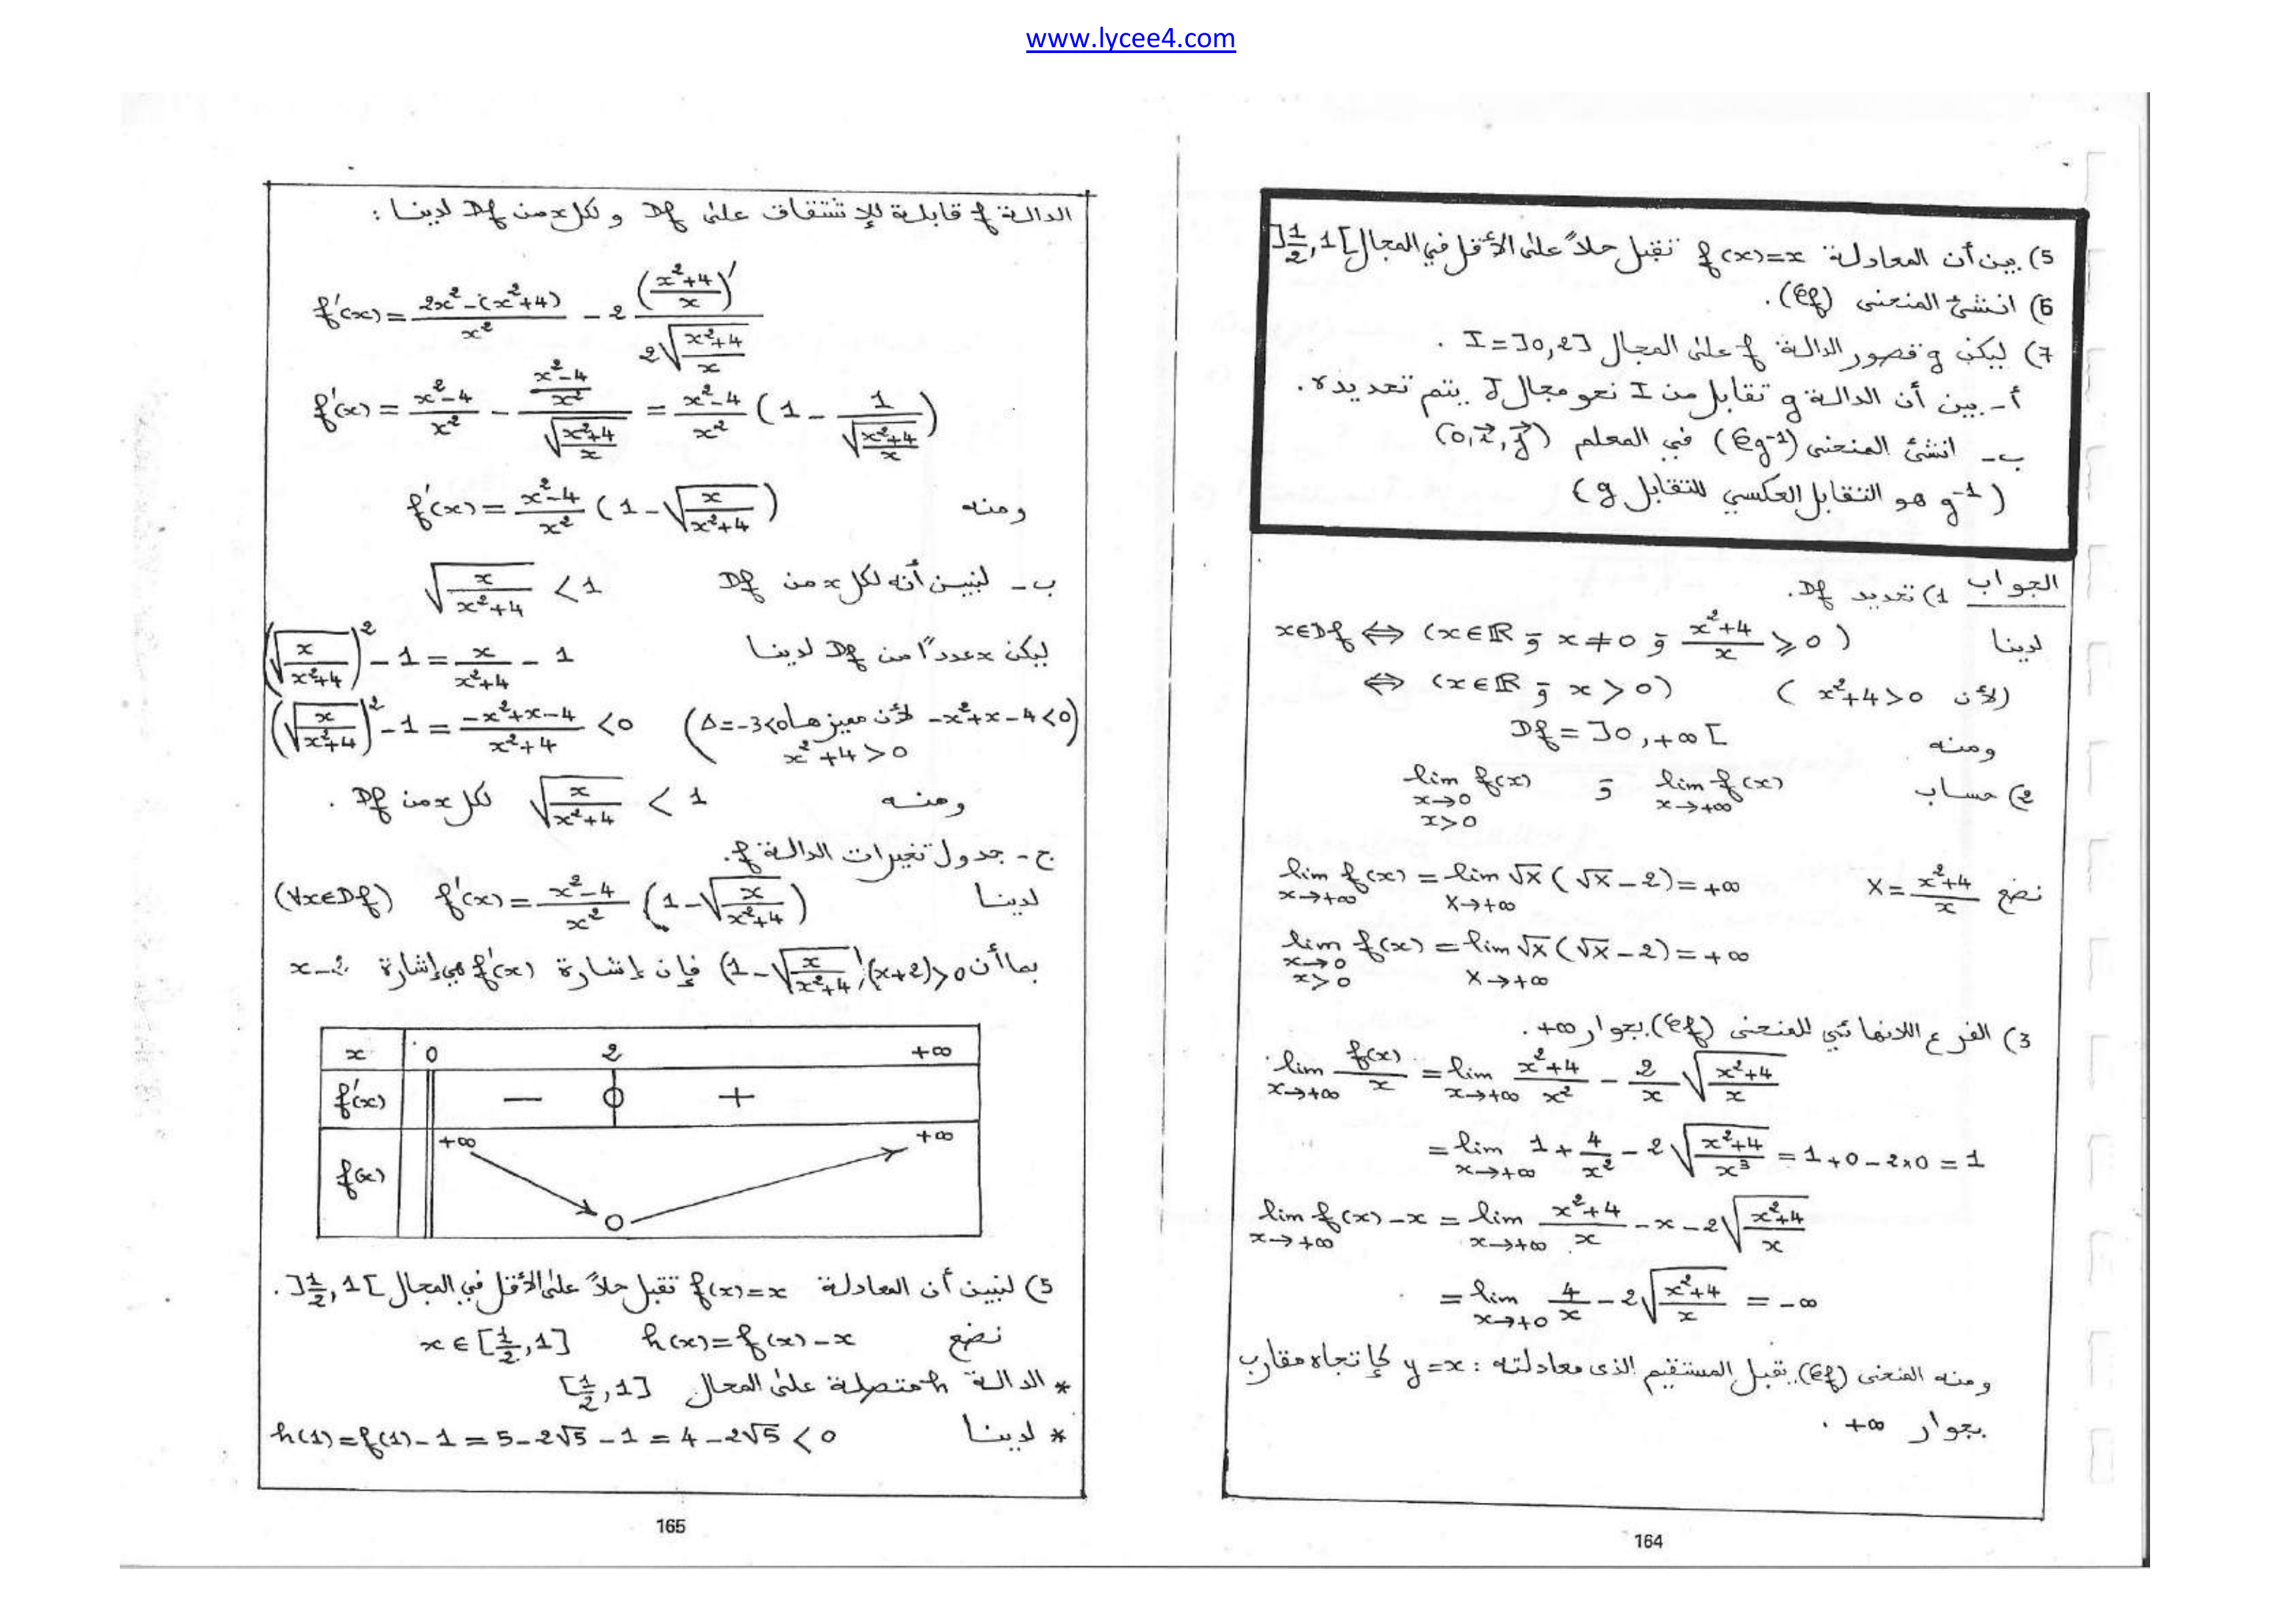 www.lycee4.com
5) بين أن المعادلة f(x)=x تقبل حلاً على الأقل في المجال ]1/2, 1[
6) انشئ المنحنى (Cf).
7) ليكن g قصور الدالة f على المجال I = ]0,2] .
أ- بين أن الدالة g تقابل من I نحو مجال J يتم تحديده.
ب- انشئ المنحنى (Cg⁻¹) في المعلم (O, i⃗, j⃗)
( g⁻¹ هو التقابل العكسي للتقابل g )
الجواب 1) تحديد Df.
لدينا x∈Df ⟺ (x∈ℝ و x≠0 و (x²+4)/x ⩾ 0)
⟺ (x∈ℝ و x>0) (لأن x²+4>0)
ومنه Df = ]0,+∞[
2) حساب lim_{x→+∞} f(x) و lim_{x→0, x>0} f(x)
نضع X = (x²+4)/x lim_{x→+∞} f(x) = lim_{X→+∞} √X(√X−2) = +∞
lim_{x→0, x>0} f(x) = lim_{X→+∞} √X(√X−2) = +∞
3) الفرع اللانهائي للمنحنى (Cf) بجوار +∞.
lim_{x→+∞} f(x)/x = lim_{x→+∞} (x²+4)/x² − (2/x)√((x²+4)/x)
= lim_{x→+∞} 1 + 4/x² − 2√((x²+4)/x³) = 1+0−2×0 = 1
lim_{x→+∞} f(x)−x = lim_{x→+∞} (x²+4)/x − x − 2√((x²+4)/x)
= lim_{x→+0} 4/x − 2√((x²+4)/x) = −∞
ومنه المنحنى (Cf) يقبل المستقيم الذى معادلته : y=x كإتجاه مقارب
بجوار +∞ .
164
الدالة f قابلة للإشتقاق على Df و لكل x من Df لدينا :
f'(x) = (2x²−(x²+4))/x² − 2 ((x²+4)/x)' / (2√((x²+4)/x))
f'(x) = (x²−4)/x² − ((x²−4)/x²)/√((x²+4)/x) = (x²−4)/x² (1 − 1/√((x²+4)/x))
ومنه f'(x) = (x²−4)/x² (1−√(x/(x²+4)))
ب- لنبين أنه لكل x من Df √(x/(x²+4)) < 1
ليكن x عدداً من Df لدينا (√(x/(x²+4)))² − 1 = x/(x²+4) − 1
(√(x/(x²+4)))² − 1 = (−x²+x−4)/(x²+4) < 0 (−x²+x−4<0 لأن مميزها Δ=−3<0
x²+4>0)
ومنه √(x/(x²+4)) < 1 لكل x من Df .
ج- جدول تغيرات الدالة f.
لدينا f'(x) = (x²−4)/x² (1−√(x/(x²+4))) (∀x∈Df)
بما أن (1−√(x/(x²+4)))(x+2)>0 فإن إشارة f'(x) هي إشارة x−2
x 0 2 +∞
f'(x) − 0 +
f(x) +∞ 0 +∞
5) لنبين أن المعادلة f(x)=x تقبل حلاً على الأقل في المجال ]1/2, 1[ .
نضع h(x)=f(x)−x x∈[1/2,1]
* الدالة h متصلة على المجال [1/2,1]
* لدينا h(1)=f(1)−1 = 5−2√5−1 = 4−2√5 < 0
165